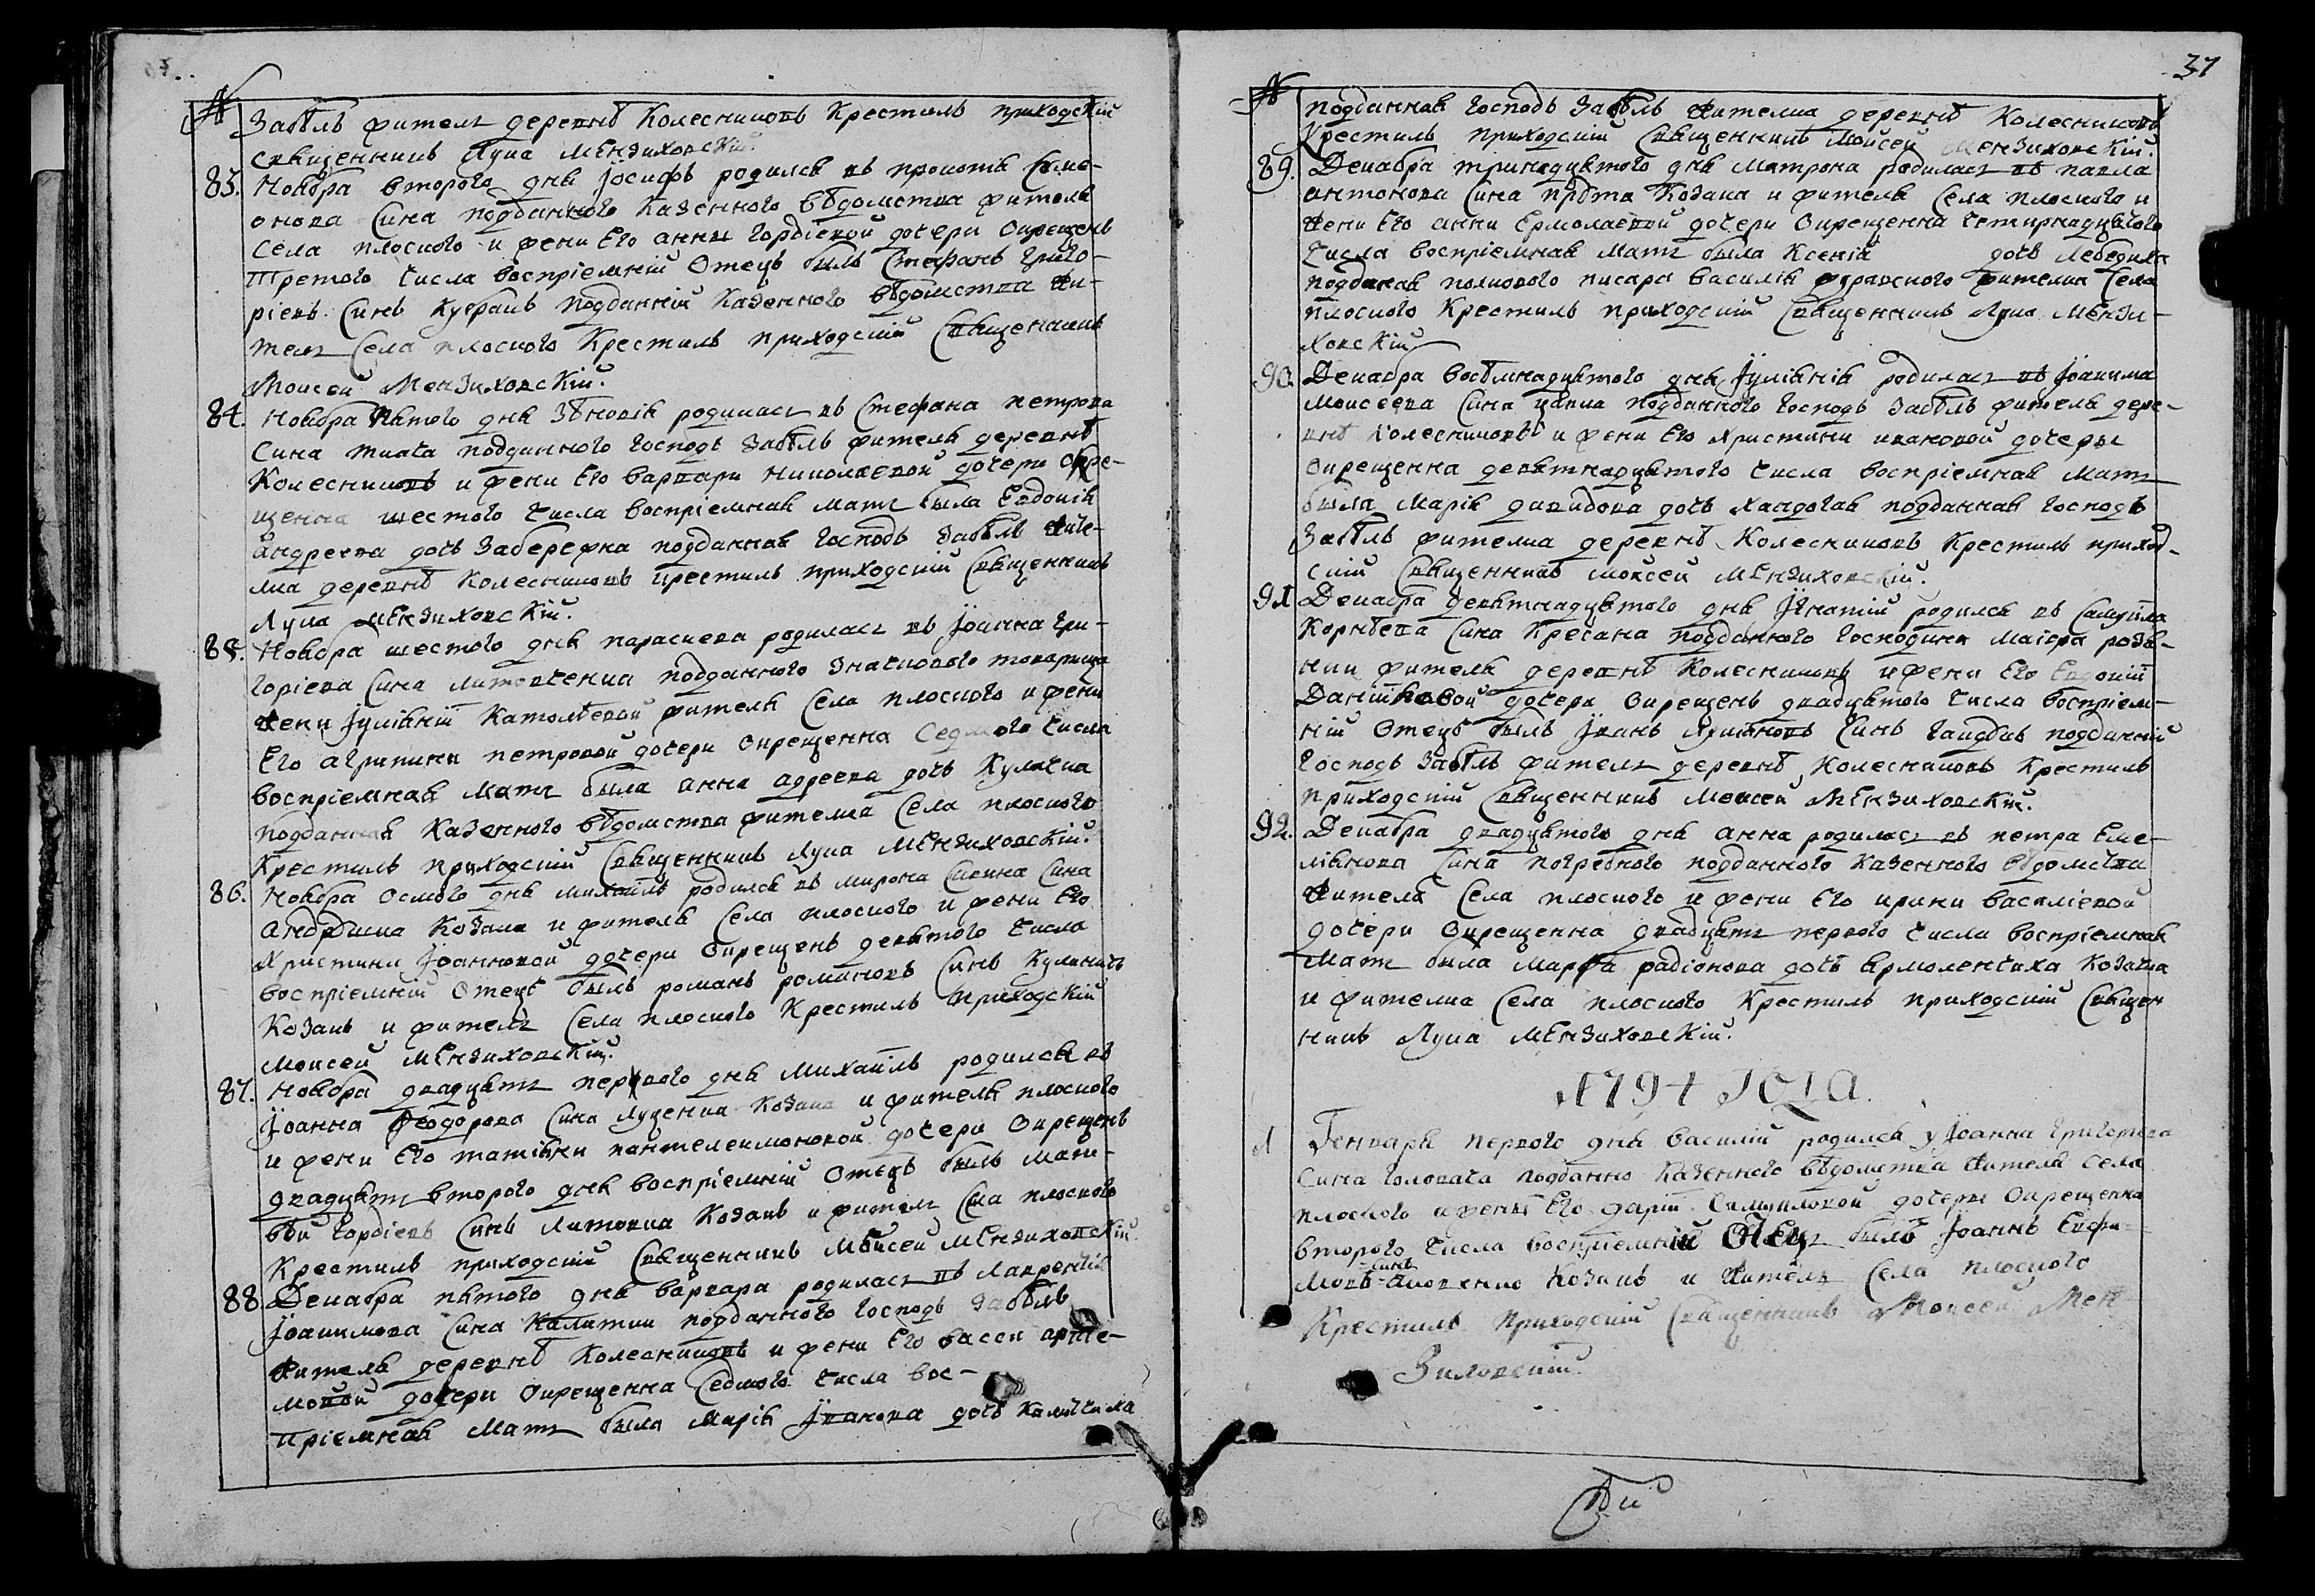 №
Забѣлъ житель деревнѣ Колесниковъ Крестилъ приходскій
священникъ Лука Мензиховскій.
83. Ноября второго дня Іосифъ родился въ прокопа Симе-
онова сина подданного Казенного вѣдомства жителя
села плоского и жени Его анны Гордіевой дочери окрещенъ
Третого числа воспріемній Отецъ былъ Стефанъ Григо-
ріевъ синъ подданній Казенного вѣдомства жи-
тель села плоского Крестилъ приходскій священникъ
Моисей Мензиховскій.
84. Ноября пятого дня Зѣновія родилась въ Стефана петрова
сина ткача подданного господъ Забѣлъ жителя деревнѣ
Колесниковъ и жени Его варвари николаевой дочери окре-
щенна шестого числа воспріемная мать была Евдокія
андреева дочъ Забережна подданная господъ Забѣлъ жите-
лка деревнѣ Колесниковъ крестилъ приходскій священникъ
Лука Мензиховскій.
85. Ноября шестого дня параскева родилась въ Іоанна гри-
горіева сина литовченка подданного значкового товарища
жени Іуліяніи жителя села плоского и жени
Его агрипини петровой дочери окрещенна седмого числа
воспріемная мать была анна адреева дочъ Кулачка
подданная Казенного вѣдомства жителка села плоского
Крестилъ приходскій священникъ Лука Мензиховскій.
86. Ноября осмого дня михаилъ родился въ мирона савина сина
Козака и жителя села плоского и жени Его
Христини Іоанновой дочери окрещенъ девятого числа
воспріемній Отецъ былъ романъ романовъ синъ Кулиничъ
Козакъ и житель села плоского Крестилъ приходскій
Моисей Мензиховскій.
87. Ноября двадцять первого дня Михаилъ родился въ
Іоанна Феодорова сина Луценка Козака и жителя плоского
и жени Его татіяни пантелеимоновой дочери окрещенъ
двадцять второго дня воспріемній Отецъ былъ мат-
вѣй гордіевъ синъ Литовка Козакъ и житель сла плоского
Крестилъ приходскій священникъ Моисей Мензиховскій.
88. Декабря пятого дня варвара родилась въ Лаврентія
Іоакимова сина Калитки подданного господъ Забѣлъ
жителя деревнѣ Колесниковъ и жени Его васси арте-
мовой дочери окрещенна седмого числа вос-
пріемная мать была марія Іванова дочъ
37
№
подданная господъ Забѣлъ жителка деревнѣ Колесниковъ
Крестилъ приходскій священникъ Моисей Мензиховскій.
89. Декабря тринадцятого дня матрона родилась въ павла
антонова сина Козака и жителя села плоского и
жени Его анни Ермолаевой дочери окрещенна четирнадцятого
числа воспріемная мать была Ксенія дочъ Лебедика
подданая полкового писара василія жителка села
плоского Крестилъ приходскій священникъ Лука Мензи-
ховскій
90. Декабря восѣмнадцятого дня Іуліянія родилась въ Іоакима
Моисеева сина цапка подданного господъ Забѣлъ жителя дере-
внѣ Колесниковъ и жени Его Христини ивановой дочеры
окрещенна девятнадцятого числа воспріемная мать
была марія давидова дочъ Хандогая подданная господъ
Забѣлъ жителка деревнѣ Колесниковъ Крестилъ приход-
скій священникъ моисей Мензиховскій.
91 Декабря девятнадцятого дня Ігнатій родился въ самуила
Корнѣева сина подданного господина маіора
жителя деревнѣ Колесниковъ и жени Его Евдокіи
Даниіловой дочери окрещенъ двадцятого числа воспріем-
ній Отецъ былъ Іванъ синъ подданній
господъ Забѣлъ житель деревнѣ Колесниковъ Крестилъ
приходскій священникъ Моисей Мензиховскій.
92. Декабря двадцятого дня анна родилась въ петра Еме-
ліянова сина погребного подданного Казенного вѣдомства
жителя села плоского и жени Его ирини василіевой
дочери окрещенна двадцять первого числа воспріемная
мать была марфа радіонова дочъ Ярмоленчиха Козачка
и жителка села плоского Крестилъ приходскій священ
никъ Лука Мензиховскій.
1794 года.
1 Генваря первого дня василій родился у Іоанна григориева
сина головача подданно Казенного вѣдомства жителя села
плоского и жены Его даріи самуиловой дочеры окрещенна
второго числа воспріемній Отецъ былъ Іоаннъ Евфи-
мовъ синъ Козакъ и житель села плоского
Крестилъ приходскій священникъ Моисей Мен
зиховскій.